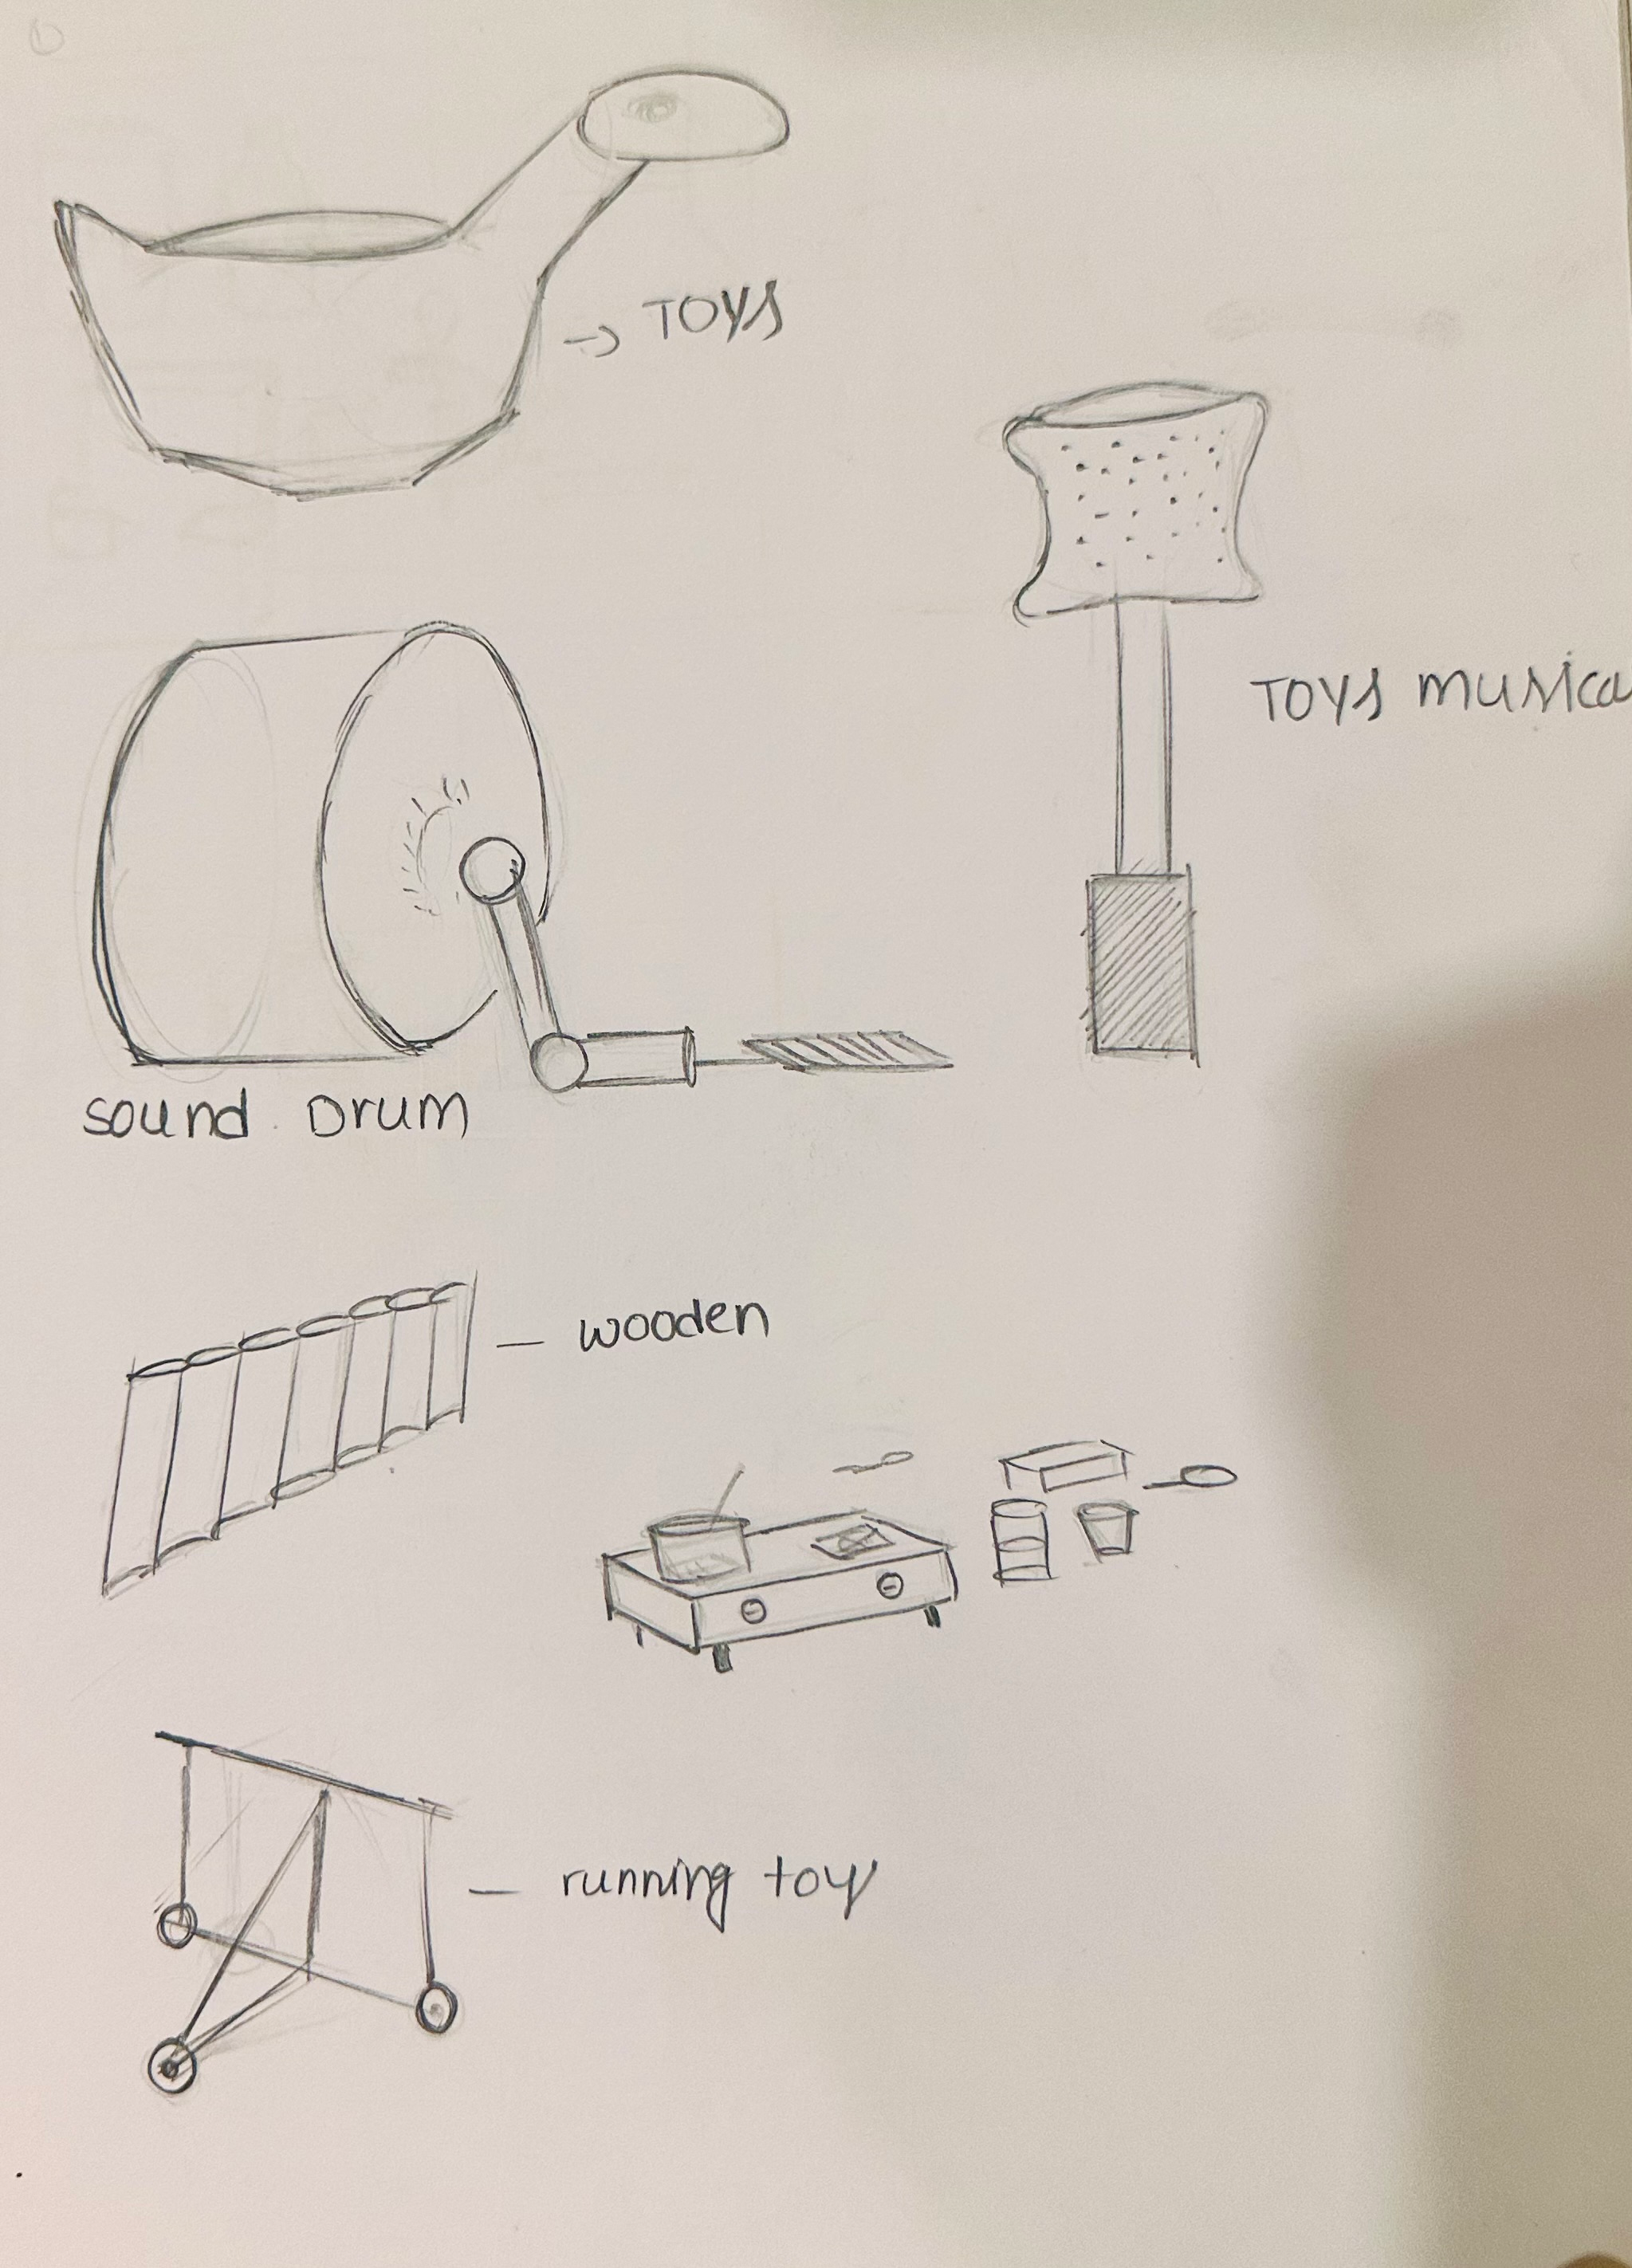 TOYS
TOYS musica
sound Drum
wooden
running toy